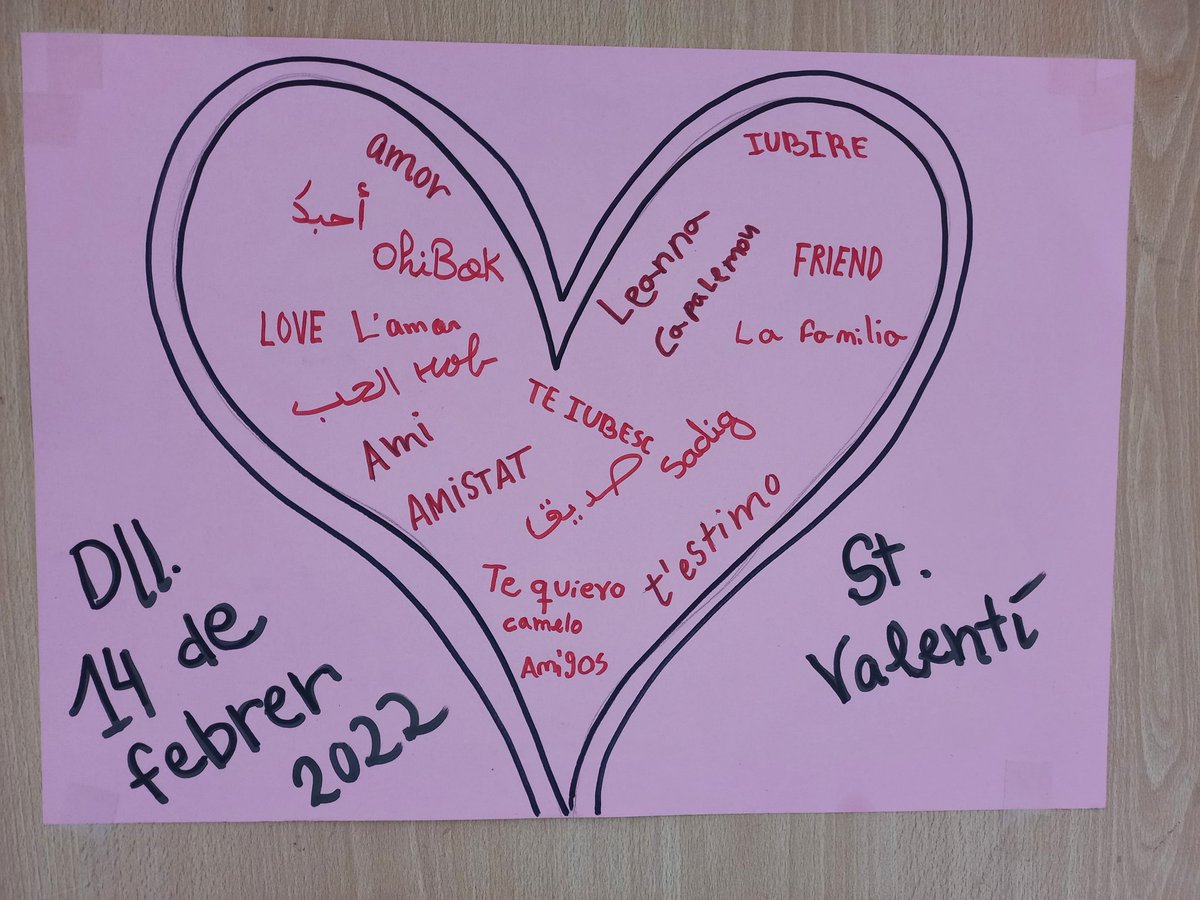 amor
أحبك
OhiBak
LOVE L'amor
الحب HOB
Ami
AMISTAT
IUBIRE
Leanna
Capalemou
FRIEND
La familia
TE IUBESC
صديق Sadig
t'estimo
Te quiero
camelo
Amigos
Dll.
14 de
febrer
2022
St.
Valentí